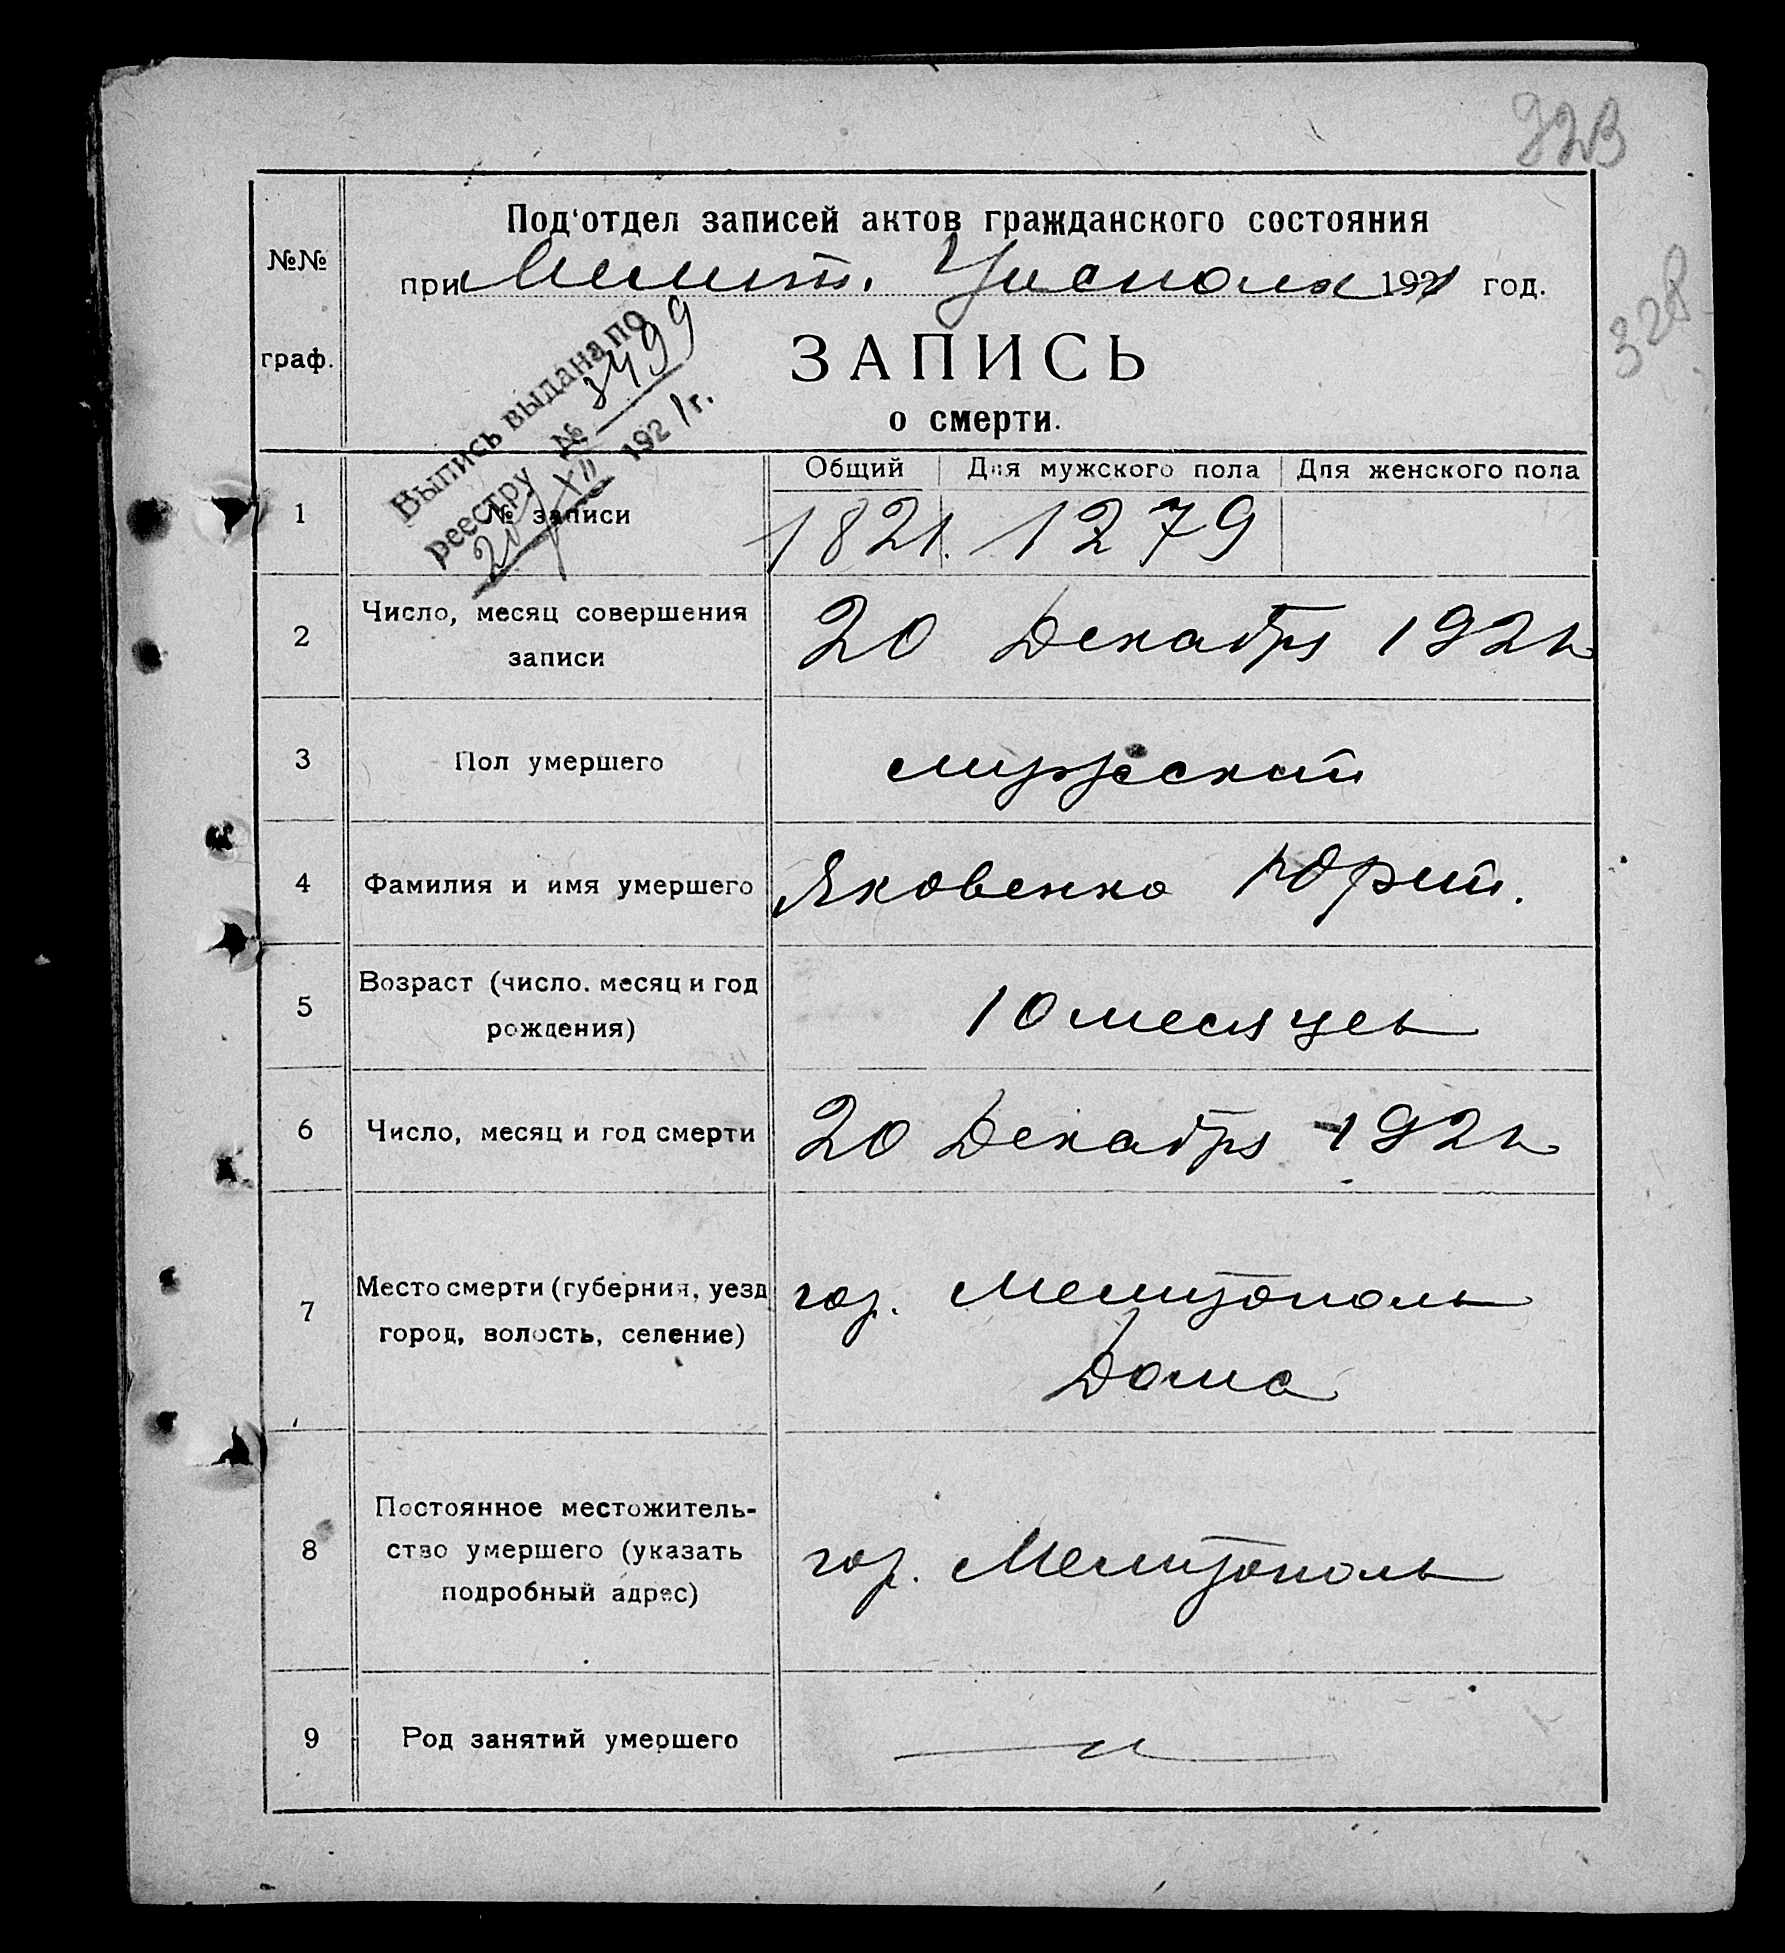 328
Под'отдел записей актов гражданского состояния
№№
при Мелит. Уисполк 1921 год.
граф.
ЗАПИСЬ
о смерти.
Выпись выдана по
реестру № 3499
20/XII 1921 г.
Общий Для мужского пола Для женского пола
1 № записи 1821. 1279
2 Число, месяц совершения
записи
20 Декабря 1921
3 Пол умершего мужской
4 Фамилия и имя умершего Яковенко Юрий.
5 Возраст (число. месяц и год
рождения)
10 месяцев
6 Число, месяц и год смерти 20 Декабря 1921
7 Место смерти (губерния, уезд
город, волость, селение)
гор. Мелитополь
Дома
8 Постоянное местожитель-
ство умершего (указать
подробный адрес)
гор. Мелитополь
9 Род занятий умершего